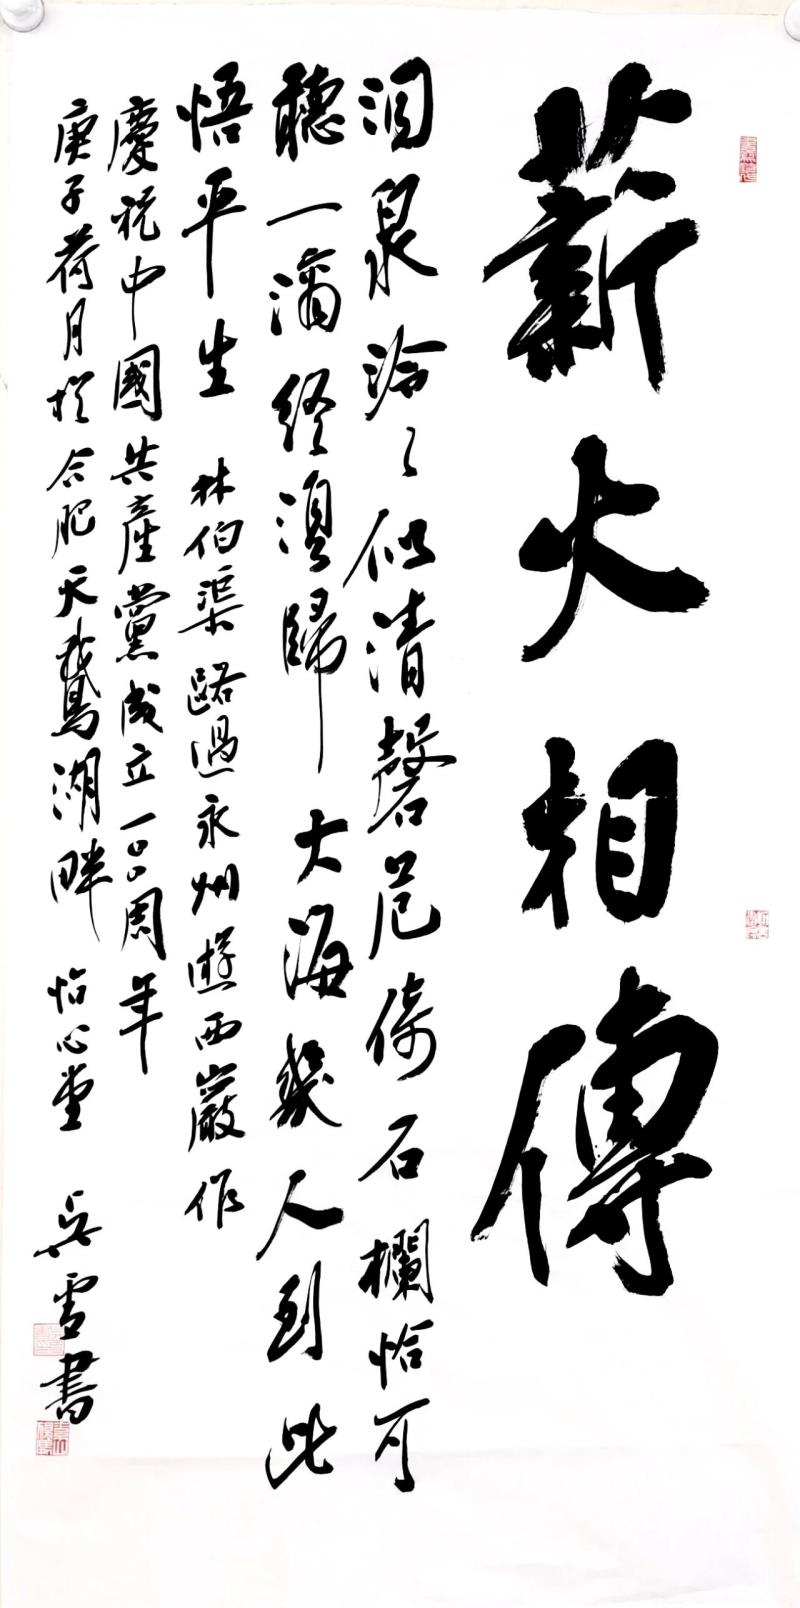 薪火相傳
洄泉泠々似清磬危倚石欄恰可
聽一滴終須歸大海幾人到此
悟平生 林伯渠路過永州遊西巖作
慶祝中國共産黨成立一〇〇周年
庚子荷月於合肥天鵝湖畔 怡心堂 吳雪書